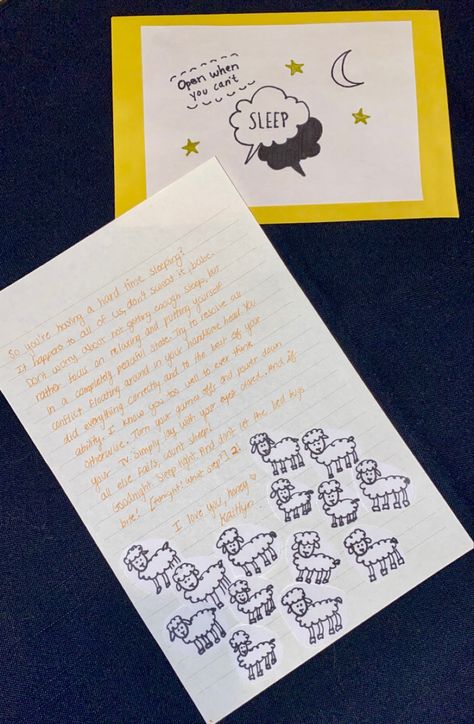 Open when
you can't
SLEEP
So you're having a hard time sleeping?
It happens to all of us, don't sweat it, babe.
Don't worry about not getting enough sleep, but
rather focus on relaxing and putting yourself
in a completely peaceful state. Try to resolve all
conflict floating around in your handsome head. You
did everything correctly and to the best of your
ability. I know you too well to ever think
otherwise. Turn your game off and power down
your TV. Simply lay with your eyes closed. And if
all else fails, count sheep!
Goodnight. Sleep tight. And don't let the bed bugs
bite!
I love you, honey ♡
Kaitlyn